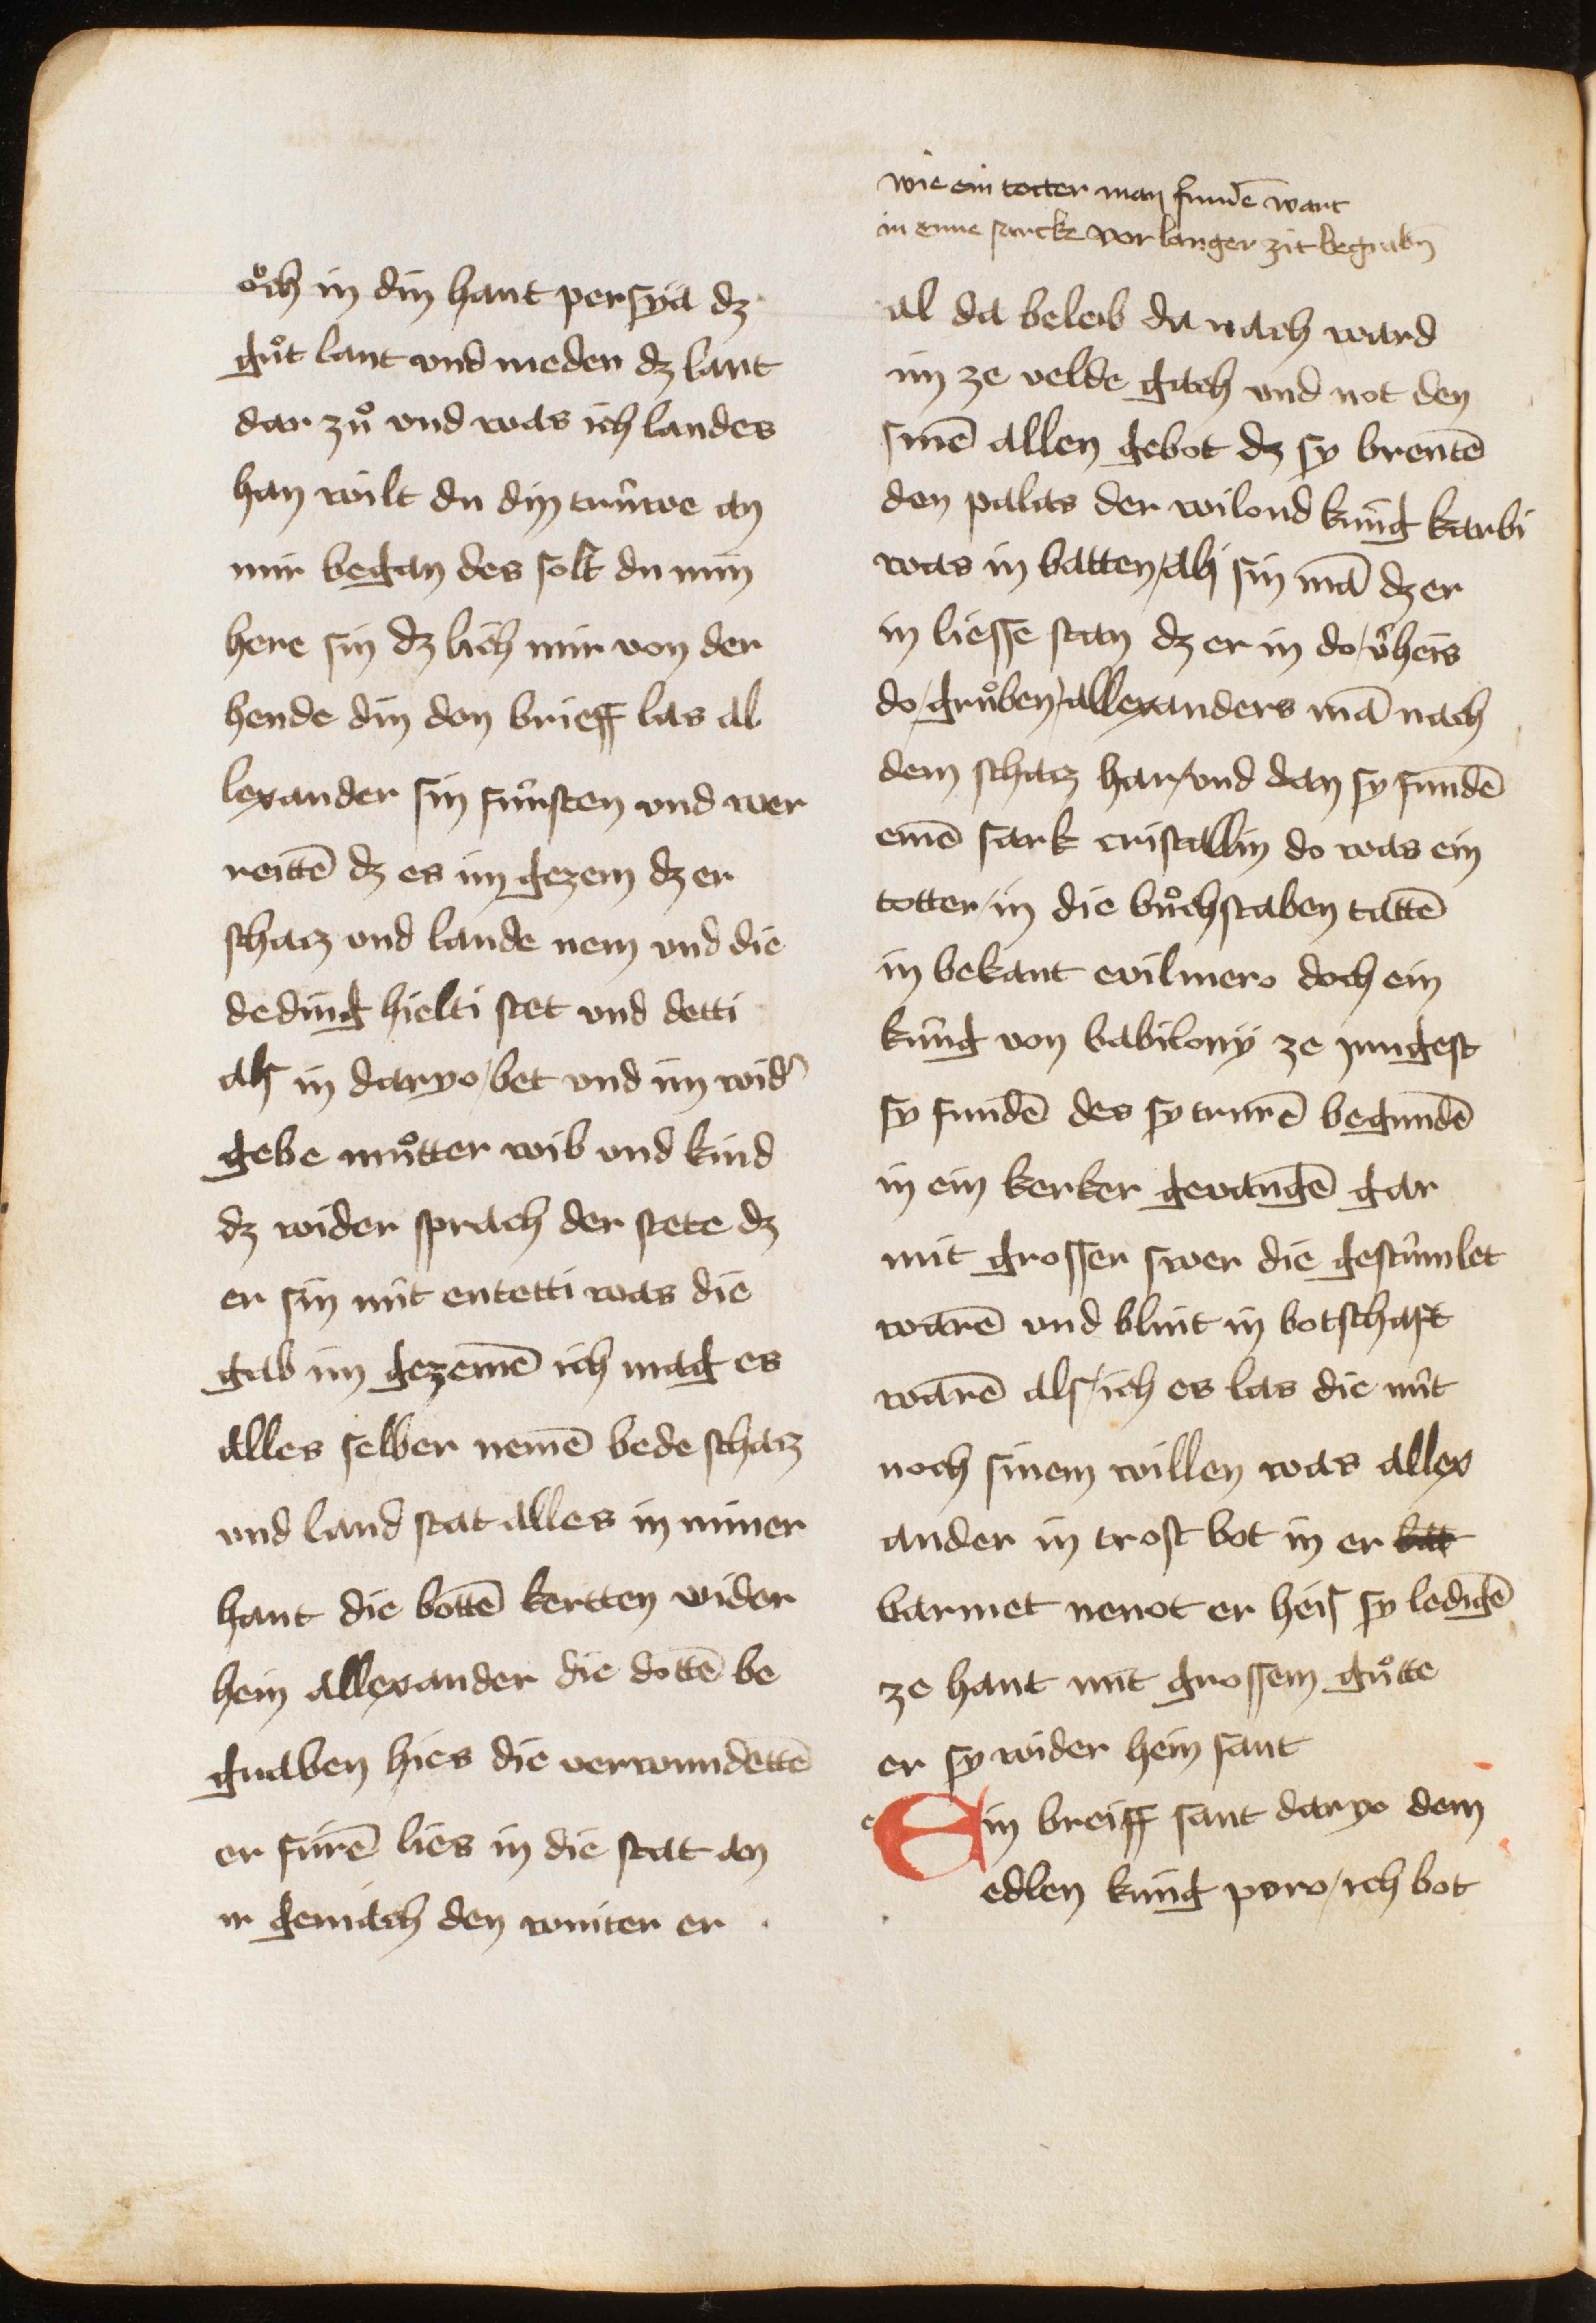 oͮch in din hant persya dz
guͦt lant vnd meden dz lant
dar zuͦ vnd was ich landes
han wilt du din trúwe an
mir began des solt du min
here sin dz lich mir von der
hende din den brieff las al
lexander sin fúrsten vnd wer
reittē dz es im gezem dz er
schacz vnd lande nem vnd die
deding hielti stet vnd detti
als in daryo bet vnd im widˀ
gebe muͦtter wib vnd kind
dz wider sprach der stete dz
er sin nút entetti was die
gab im gezemē ich mag es
alles selber nemē bede schacz
vnd land stat alles in miner
hant die bottē kertten wider
hein allexander die dottē be
graben hies die verwundettē
er fúrē lies in die stat an
ir gemach den winter er
wie ein totter man fundē wart
in eime sarcke vor langer zit begrabn̄
al da beleib da nach ward
im ze velde gach vnd not den
sinē allen gebot dz sy brentē
den palas der wilond kúng karbi
was in batten / als sin mā dz er
in liesse stan dz er in do / v̾heis
do / gruͦben / allexanders mā nach
dem schacz har / vnd dan sy fundē
einē sark cristallin do was ein
totter / in die buͦchstaben tattē
in bekant evilmero doch ein
kúng von babilony ze jungest
sy fundē des sy trurē begundē
in ein kerker gevangē gar
mit grosser swer die gestúmlet
warē vnd blint in botschaft
warē als / ich es las die nút
noch sinem willen was allex
ander in trost bot in er bat
barmet ir not er heis sy ledigē
ze hant mit grossem guͦtte
er sy wider hein sant
Ein breiff sant daryo dem
edlen kúng poro / ich bot